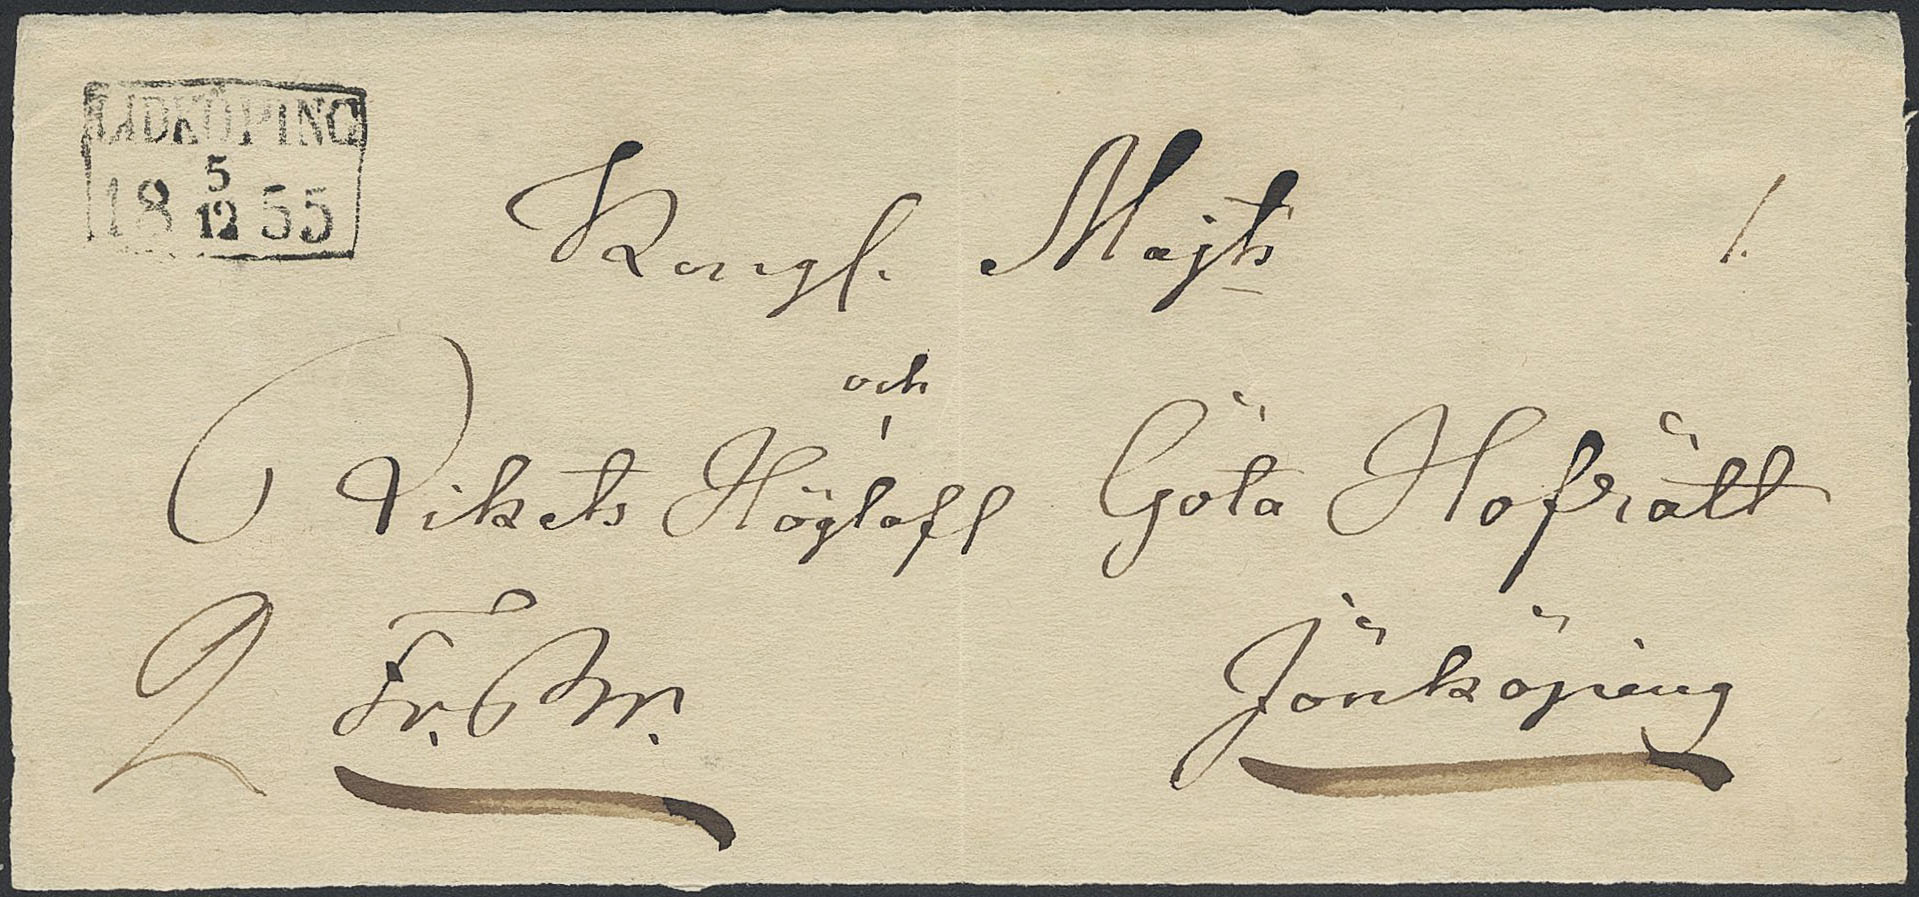 LIDKÖPING
5
18 12 55
Kongl. Majts 1.
och
Rikets Högl Götha Hofrätt
2 Fr. Br. Jönköping